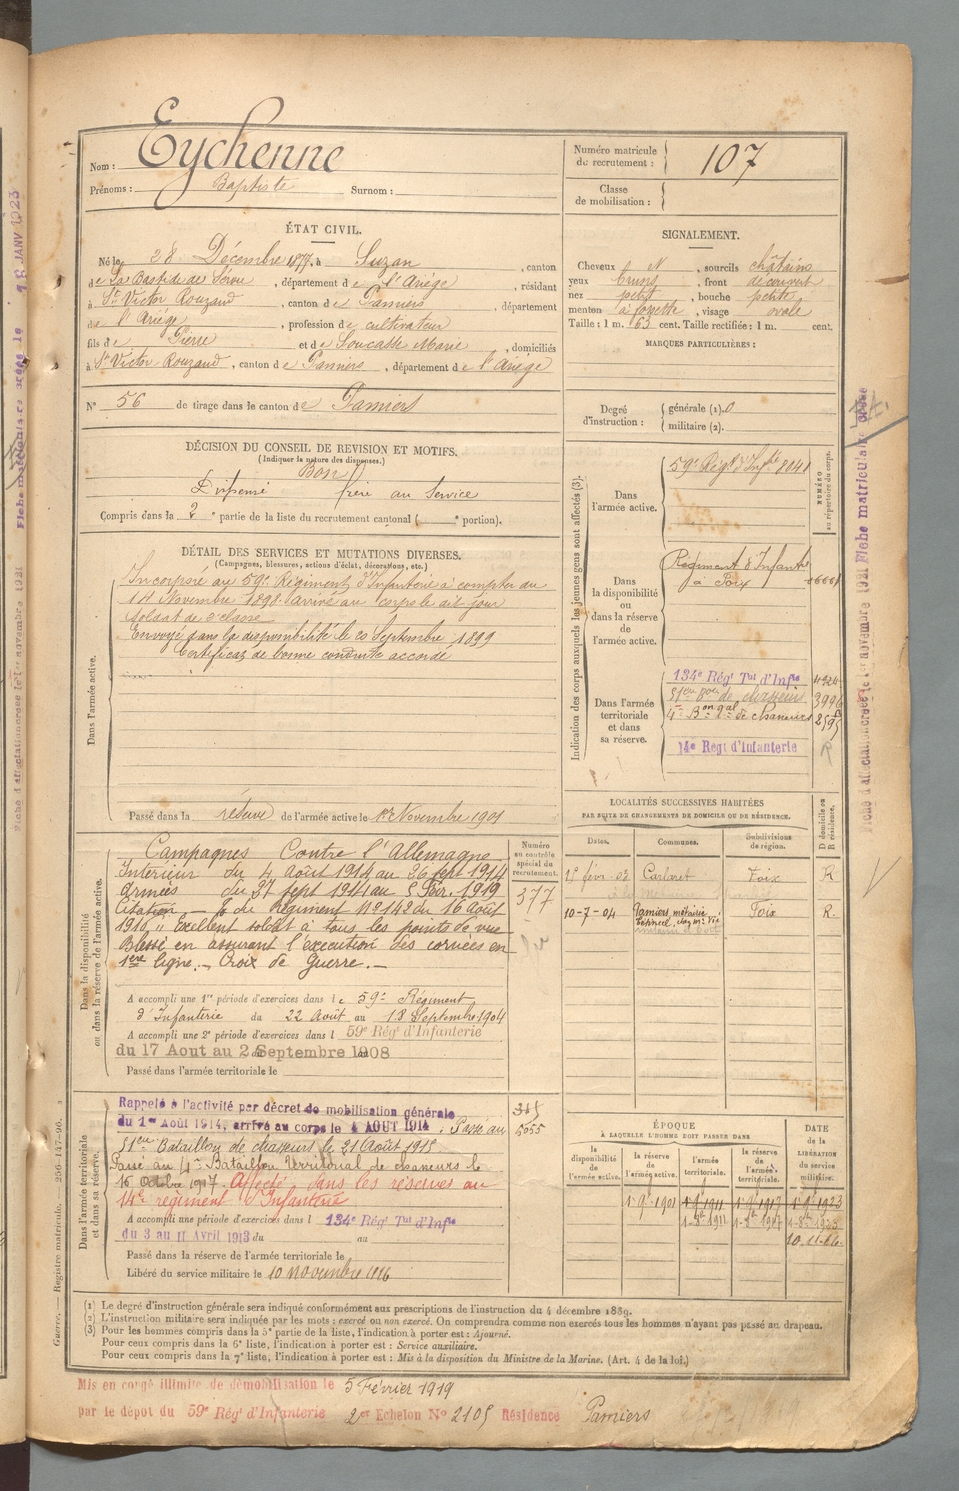 Nom : Eychenne
Prénoms : Baptiste Surnom :
Numéro matricule du recrutement : 107
Classe de mobilisation :
ÉTAT CIVIL.
Né le 28 Décembre 1877, à Suzan, canton
de La Bastide de Sérou, département de l'Ariège, résidant
à St Victor Rouzaud, canton de Pamiers, département
de l'Ariège, profession de cultivateur
fils de Pierre et de Soucasse Marie, domiciliés
à St Victor Rouzaud, canton de Pamiers, département de l'Ariège
N° 56 de tirage dans le canton de Pamiers
SIGNALEMENT.
Cheveux N, sourcils châtains
yeux bruns, front découvert
nez petit, bouche petite
menton à fossette, visage ovale
Taille : 1 m. 63 cent. Taille rectifiée : 1 m. cent.
MARQUES PARTICULIÈRES :
Degré d'instruction : générale (1). 0
militaire (2).
DÉCISION DU CONSEIL DE REVISION ET MOTIFS.
(Indiquer la nature des dispenses.)
Bon
Dispensé frère au Service
Compris dans la 2e partie de la liste du recrutement cantonal ( e portion).
DÉTAIL DES SERVICES ET MUTATIONS DIVERSES.
(Campagnes, blessures, actions d'éclat, décorations, etc.)
Dans l'armée active.
Incorporé au 59e Régiment d'Infanterie à compter du
14 Novembre 1898 arrivé au corps le dit jour
soldat de 2e classe
Envoyé dans la disponibilité le 20 Septembre 1899
Certificat de bonne conduite accordé
Passé dans la réserve de l'armée active le 1er Novembre 1901
Indication des corps auxquels les jeunes gens sont affectés (3).
NUMÉRO au répertoire du corps.
Dans l'armée active.
59e Régt d'Infie 8041
Dans la disponibilité ou dans la réserve de l'armée active.
Régiment d'Infante
à Foix
Dans l'armée territoriale et dans sa réserve.
134e Régt Tal d'Infie 4924
51eme Bon de chasseurs 3996
4e Bon Tal de Chasseurs 2595
14e Régt d'Infanterie R
Dans la disponibilité ou dans la réserve de l'armée active.
Numéro au contrôle spécial du recrutement.
377
Campagnes Contre l'Allemagne
Intérieur du 4 Août 1914 au 26 sept 1914
Armées du 27 sept 1914 au 5 Fév. 1919
Citation du Régiment N° 142 du 16 Août
1916 ,, Excellent soldat à tous les points de vue
Blessé en assurant l'exécution des corvées en
1ère ligne. - Croix de Guerre. -
A accompli une 1re période d'exercices dans le 59e Régiment
d'Infanterie du 22 Août au 18 Septembre 1904
A accompli une 2e période d'exercices dans l 59e Régt d'Infanterie
du 17 Aout au 2 Septembre 1908
Passé dans l'armée territoriale le
LOCALITÉS SUCCESSIVES HABITÉES
PAR SUITE DE CHANGEMENTS DE DOMICILE OU DE RÉSIDENCE.
Dates. Communes. Subdivisions de région. D domicile ou R résidence.
févr. 02 Carlaret Foix R
10-7-04 Pamiers, métairie Foix R.
Dans l'armée territoriale et dans sa réserve.
Rappelé à l'activité par décret de mobilisation générale
du 1er Août 1914, arrivé au corps le 4 AOUT 1914. Passé au
51eme Bataillon de chasseurs le 21 Août 1915
Passé au 4e Bataillon Territorial de chasseurs le
16 Octobre 1917. Affecté dans les réserves au
14e régiment d'Infanterie
A accompli une période d'exercices dans l 134e Régt Tal d'Infie
du 3 au 11 Avril 1913 du au
Passé dans la réserve de l'armée territoriale le
Libéré du service militaire le 10 novembre 1926
345
5055
ÉPOQUE
À LAQUELLE L'HOMME DOIT PASSER DANS
la disponibilité de l'armée active. la réserve de l'armée active. l'armée territoriale. la réserve de l'armée territoriale.
DATE de la LIBÉRATION du service militaire.
1 9bre 1901 1 9bre 1911 1 9bre 1917 1 9bre 1923
10.11.26.
(1) Le degré d'instruction générale sera indiqué conformément aux prescriptions de l'instruction du 4 décembre 1889.
(2) L'instruction militaire sera indiquée par les mots : exercé ou non exercé. On comprendra comme non exercés tous les hommes n'ayant pas passé au drapeau.
(3) Pour les hommes compris dans la 5e partie de la liste, l'indication à porter est : Ajourné.
Pour ceux compris dans la 6e liste, l'indication à porter est : Service auxiliaire.
Pour ceux compris dans la 7e liste, l'indication à porter est : Mis à la disposition du Ministre de la Marine. (Art. 4 de la loi.)
Guerre. — Registre matricule. — 256-147-96.
Mis en congé illimité de démobilisation le 5 Février 1919
par le dépôt du 59e Régt d'Infanterie 2er Echelon N° 2105 Résidence Pamiers